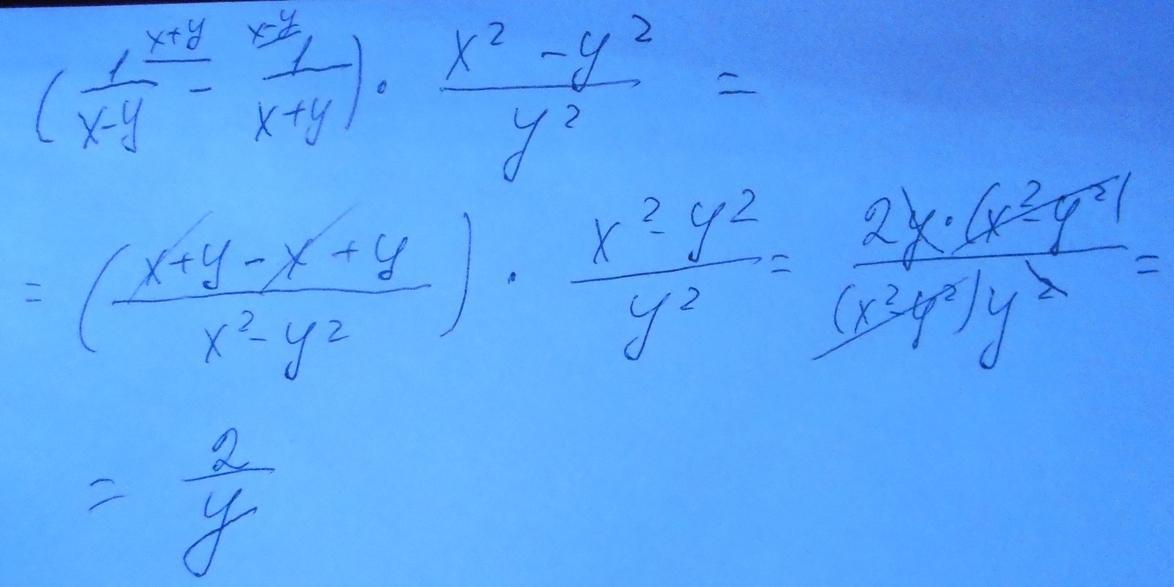 (1/(x-y)^(x+y) - 1/(x+y)^(x-y)) · (x² - y²)/y² =
= ((x+y-x+y)/(x²-y²)) · (x²-y²)/y² = (2y·(x²-y²))/((x²-y²)y²) =
= 2/y